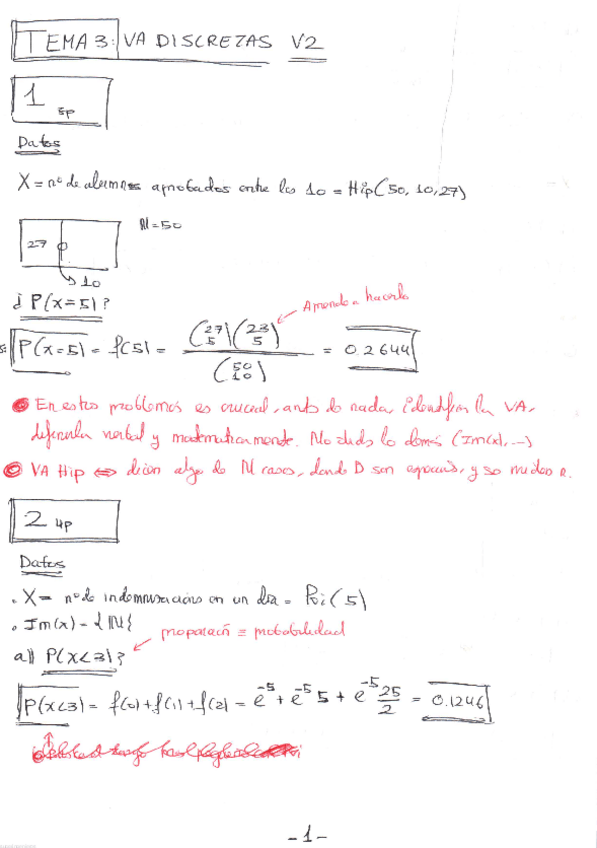 TEMA 3: VA DISCRETAS V2
1 5p
Datos
X = nº de alumnos aprobados entre los 10 = Hip(50, 10, 27)
N=50
27
10
¿ P(X=5)?
Aprende a hacerlo
P(X=5) = f(5) = (27 5)(23 5) / (50 10) = 0.2644
En estos problemas es crucial, antes de nada, identificar la VA,
definirla verbal y matemáticamente. No lo demás (Im(x), ...)
VA Hip ⇔ dicen algo de N casos, donde D son especiales, y se miden n.
2 4p
Datos
. X = nº de indemnizaciones en un día = Poi(5)
. Im(x) = {IN}
proporción ≡ probabilidad
a)) P(X<3)?
P(X<3) = f(0)+f(1)+f(2) = e^-5 + e^-5 5 + e^-5 25/2 = 0.1246
-1-